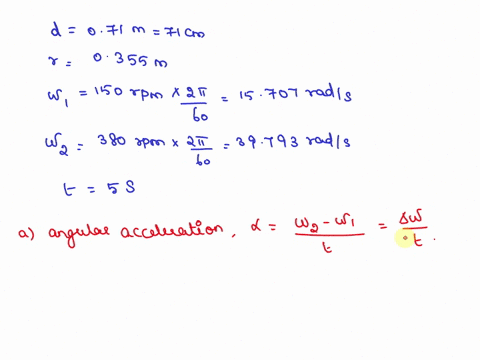 d = 0.71 m = 71 cm
r = 0.355 m
ω₁ = 150 rpm × 2π/60 = 15.707 rad/s
ω₂ = 380 rpm × 2π/60 = 39.793 rad/s
t = 5 S
a) angular acceleration, α = ω₂ - ω₁/t = Δω/t.